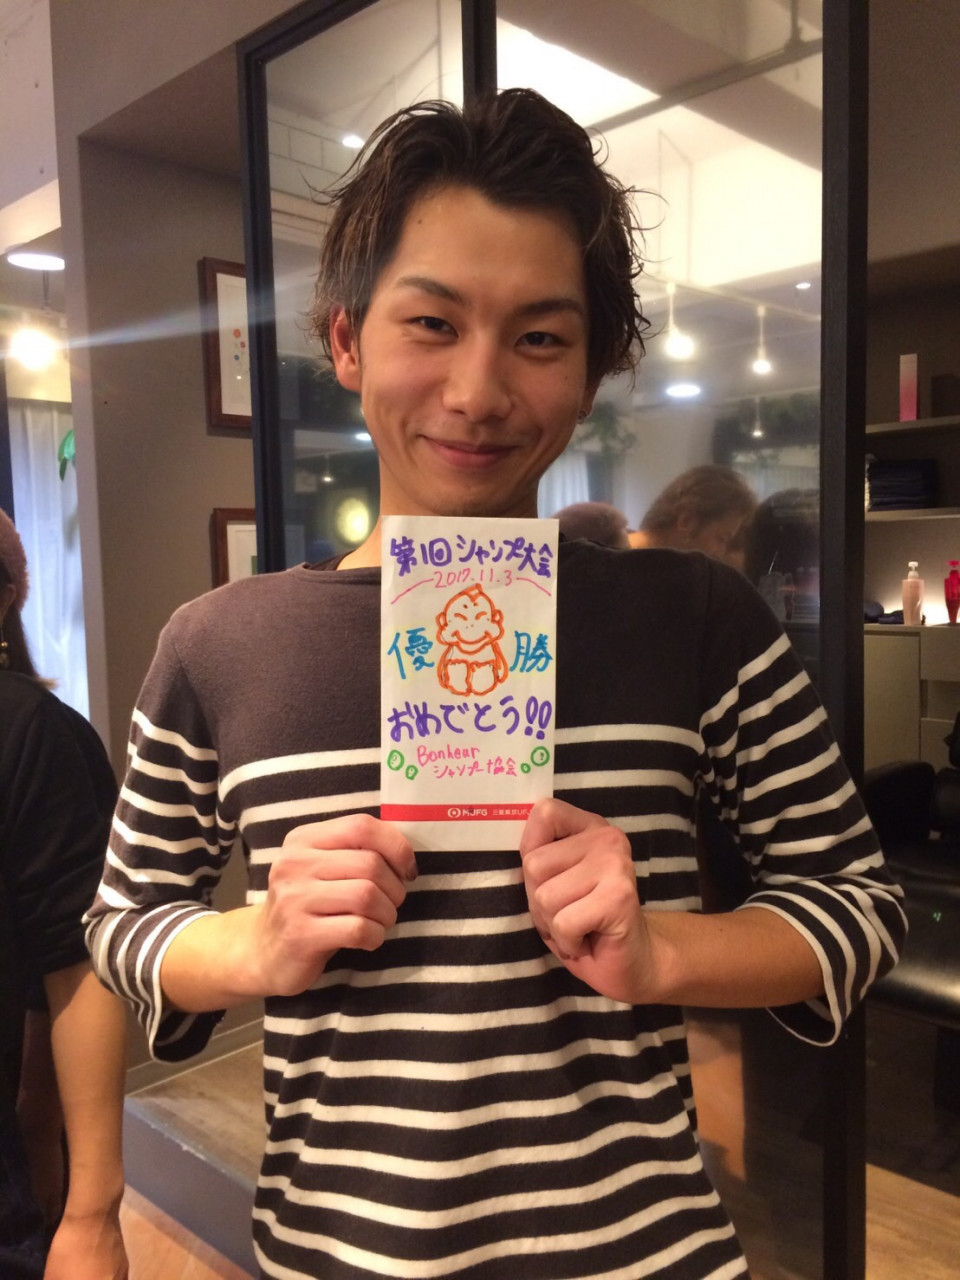 第1回シャンプー大会
2017.11.3
優勝
おめでとう!!
Bonheur
シャンプー協会
MUFG 三菱東京UFJ